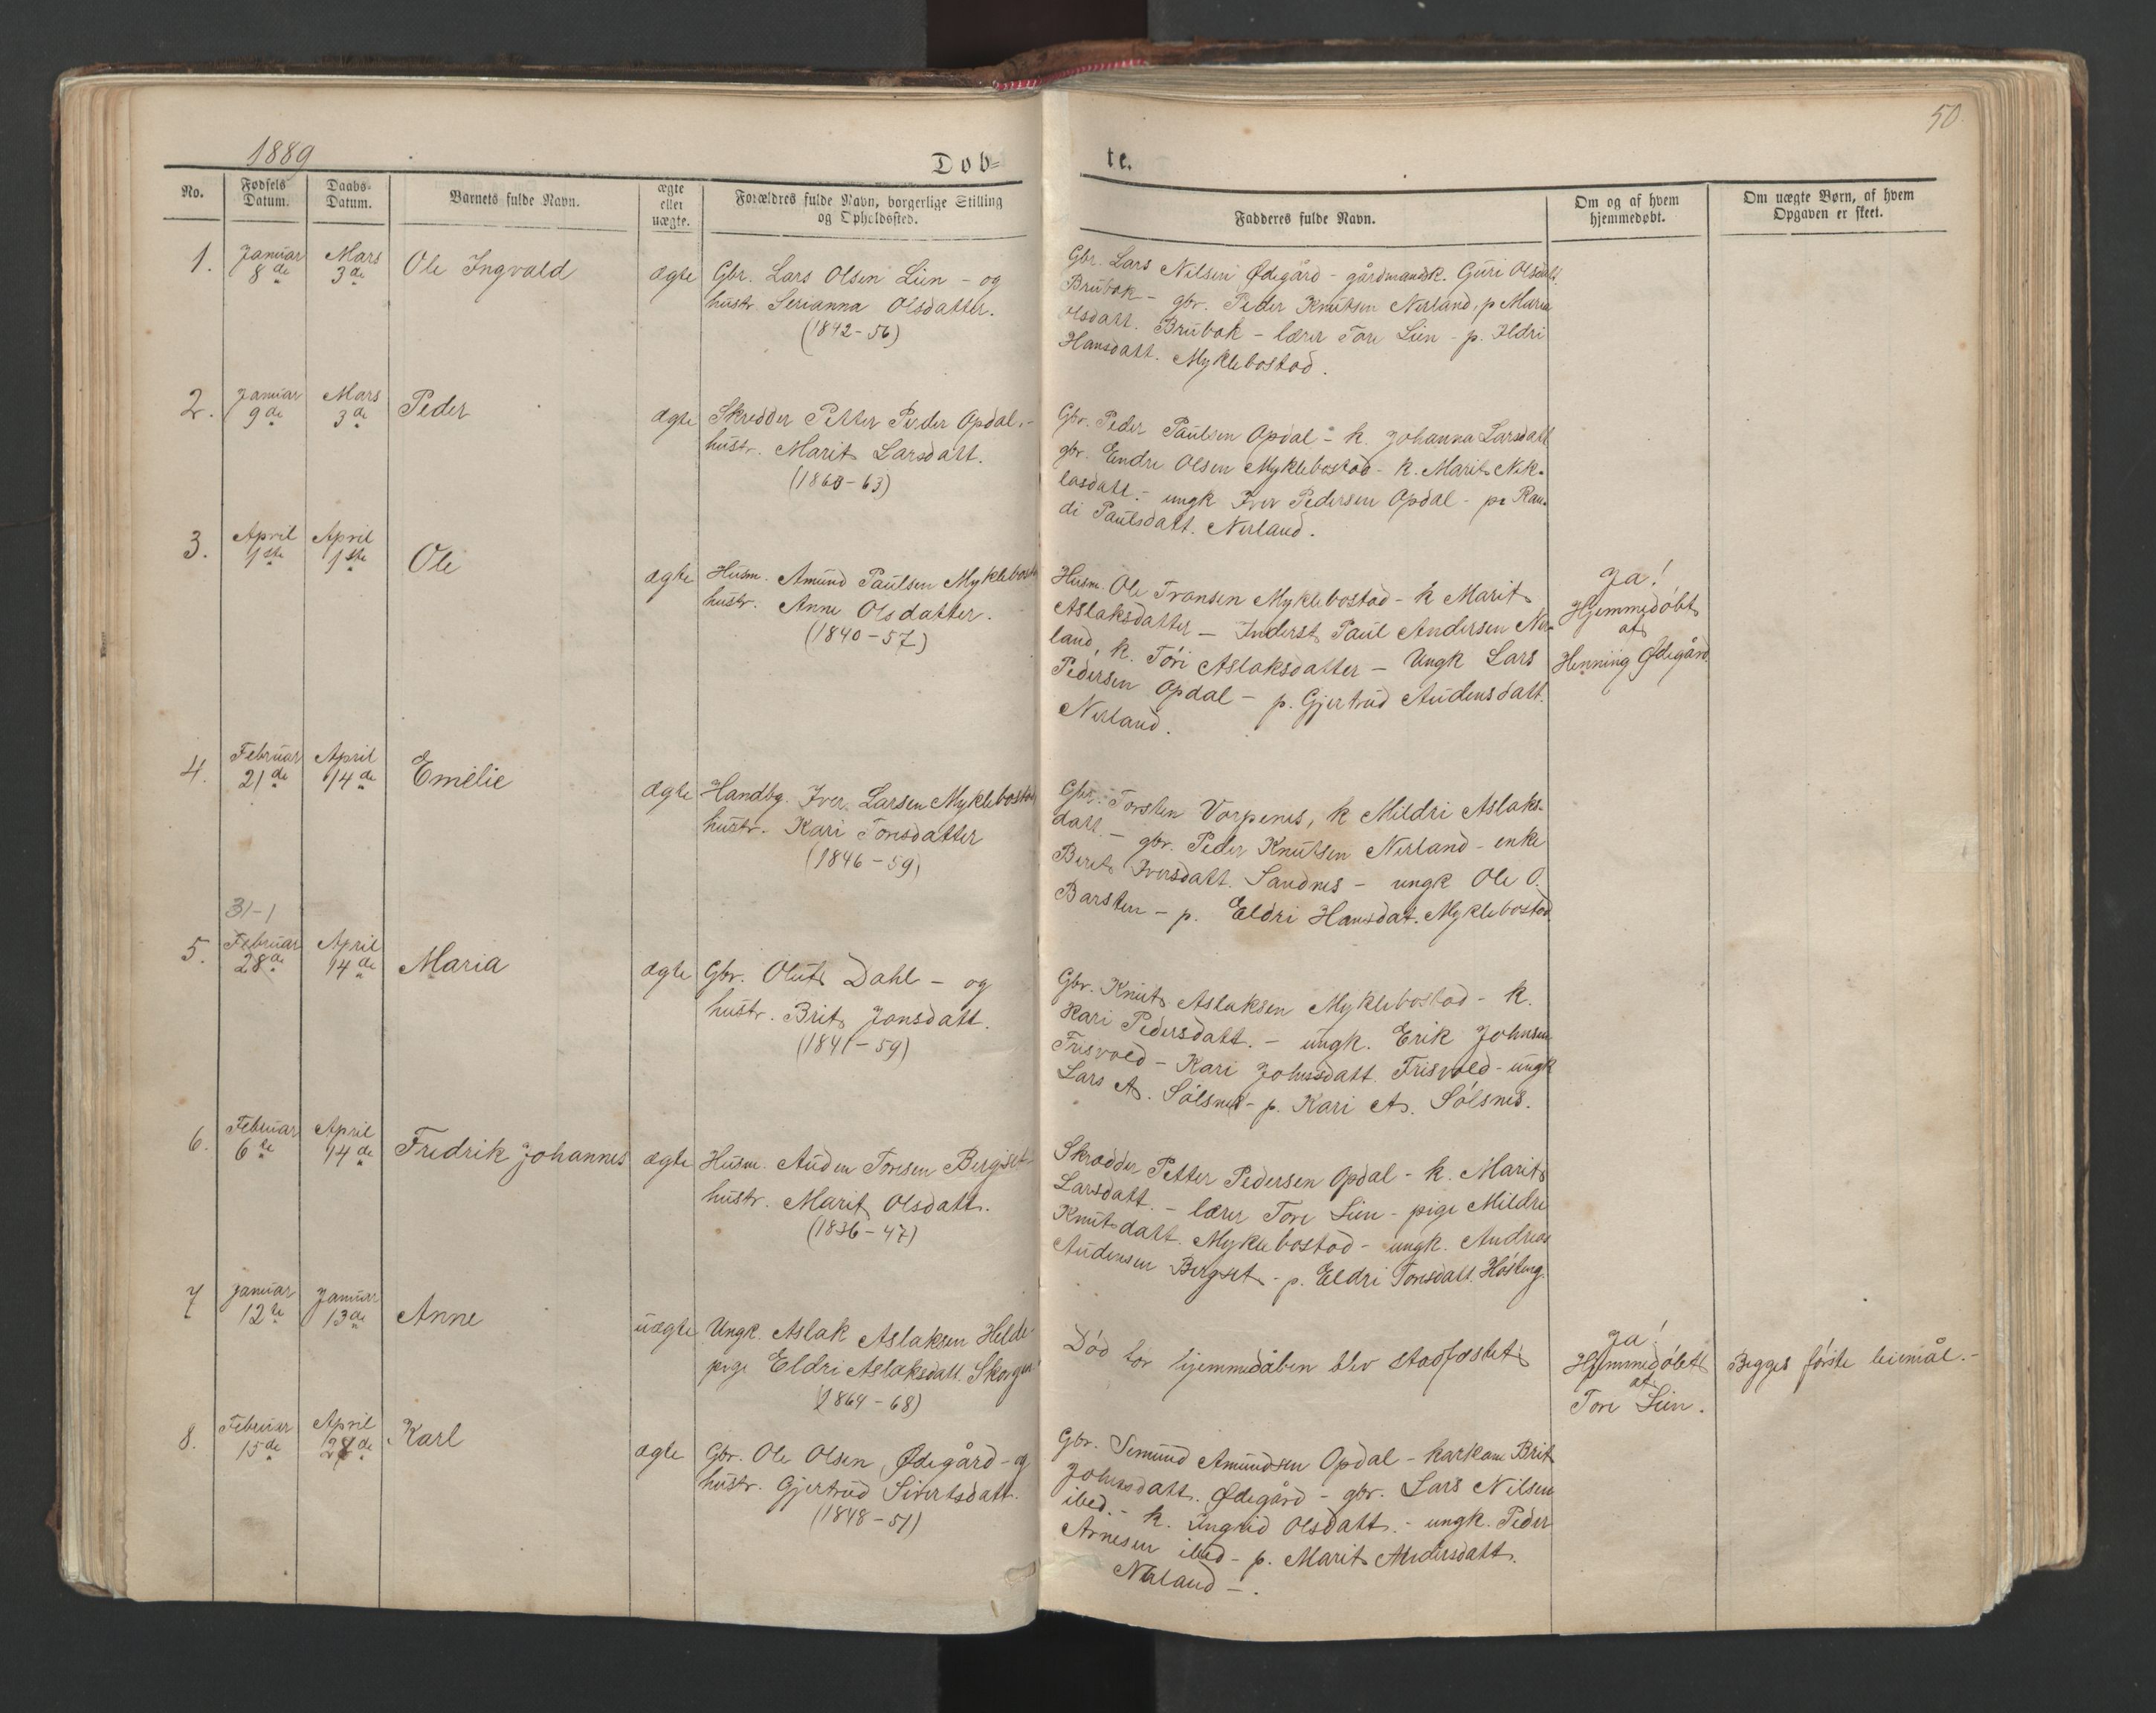 50
1889
Døb=
te.
No.
Fødsels Datum.
Daabs- Datum.
Barnets fulde Navn.
ægte eller uægte.
Forældres fulde Navn, borgerlige Stilling
og Opholdssted.
Fadderes fulde Navn.
Om og af hvem
hjemmedøbt.
Om uægte Børn, af hvem
Opgaven er skeet.
1.
Januar
8de
Mars
3de
Ole Ingvald
ægte
Gbr. Lars Olsen Lien - og
hustr. Serianna Olsdatter.
(1842-56)
Gbr. Lars Nilsen Ødegård - gårdmandsk. Guri Olsdatt.
Brubak - gbr. Peder Knutsen Nerland, p Maria
Olsdatt. Brubak - lærer Tore Lien - p. Eldri
Hansdatt. Myklebostad.
2.
Januar
9de
Mars
3de
Peder
ægte
Skredder Petter Peder Opdal. -
hustr. Marit Larsdatt.
(1860-63)
Gbr. Peder Paulsen Opdal - k. Johanna Larsdatt
gbr. Endre Olsen Myklebostad - k. Marit Nik-
lasdatt. - ungk Iver Pedersen Opdal - p. Ran-
di Paulsdatt. Nerland.
3.
April
1ste
April
1ste
Ole
ægte
Husm. Amund Paulsen Myklebost
hustr. Anne Olsdatter.
(1840-57)
Husm. Ole Fransen Myklebostad - k Marit
Aslaksdatter - Inderst Paul Andersen Ner-
land, k. Tøri Aslaksdatter - Ungk Lars
Pedersen Opdal - p. Gjertrud Audensdatt.
Nerland.
Ja!
Hjemmedøbt
af
Henning Ødegård
4.
Februar
21de
April
14de
Emelie
ægte
Handbg. Iver Larsen Myklebostad
hustr. Kari Toresdatter
(1846-59)
Gbr. Torsten Vorpenes, k Mildri Aslaks-
datt. - gbr. Peder Knutsen Nerland - enke
Berit Iversdatt. Sandnes - ungk Ole O.
Barsten - p. Eldri Hansdat. Myklebostad
31-1
5.
Februar
28de
April
14de
Maria
ægte
Gbr. Oluf Dahl - og
hustr. Brit Jonsdatt.
(1841-59)
Gbr. Knut Aslaksen Myklebostad - k.
Kari Pedersdatt. - ungk. Erik Johnsen
Frisvold - Kari Johnsdatt. Frisvold - ungk
Lars A. Sølsnes - p. Kari A. Sølsnes.
6.
Februar
6te
April
14de
Fredrik Johannes
ægte
Husm. Auden Toresen Bergset
hustr. Marit Olsdatt.
(1836-47)
Skrædder Petter Pedersen Opdal - k. Marit
Larsdatt. - lærer Tore Lien - pige Mildri
Knutsdatt. Myklebostad - ungk. Andreas
Audensen Bergset - p. Eldri Toresdatt.
7
Januar
12te
Januar
13de
Anne
uægte
Ungk. Aslak Aslaksen Helde
pige Eldri Aslaksdatt. Skorgen
(1864-68)
Død før hjemmedåben blev stadfæstet
Ja!
Hjemmedøbt
af
Tore Lien.
Begges første leiemål. -
8.
Februar
15de
April
28de
Karl
ægte
Gbr. Ole Olsen Ødegård - og
hustr. Gjertrud Sivertsdatt.
(1848-51)
Gbr. Semund Amundsen Opdal - karkone Brit
Johnsdatt. Ødegård - gbr. Lars Nilsen
ibed - k. Ingrid Olsdatt. - ungk. Peder
Arnesen ibed - p. Marit Andersdatt.
Nerland - .